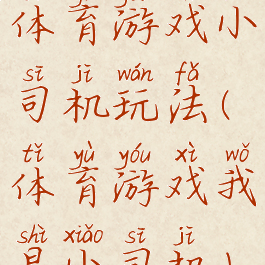 体育游戏小
sī jī wán fǎ
司机玩法(
tǐ yù yóu xì wǒ
体育游戏我
shì xiǎo sī jī
是小司机)